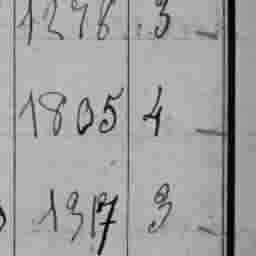 1296 3 -
1805 4 -
1317 3 -